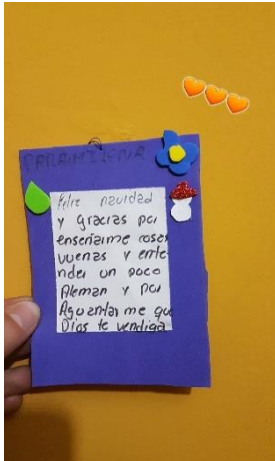 Felis navidad
y gracias por
enseñarme cosas
vuenas y ente
nder un poco
Aleman y por
Aguantar me que
Dios te vendiga